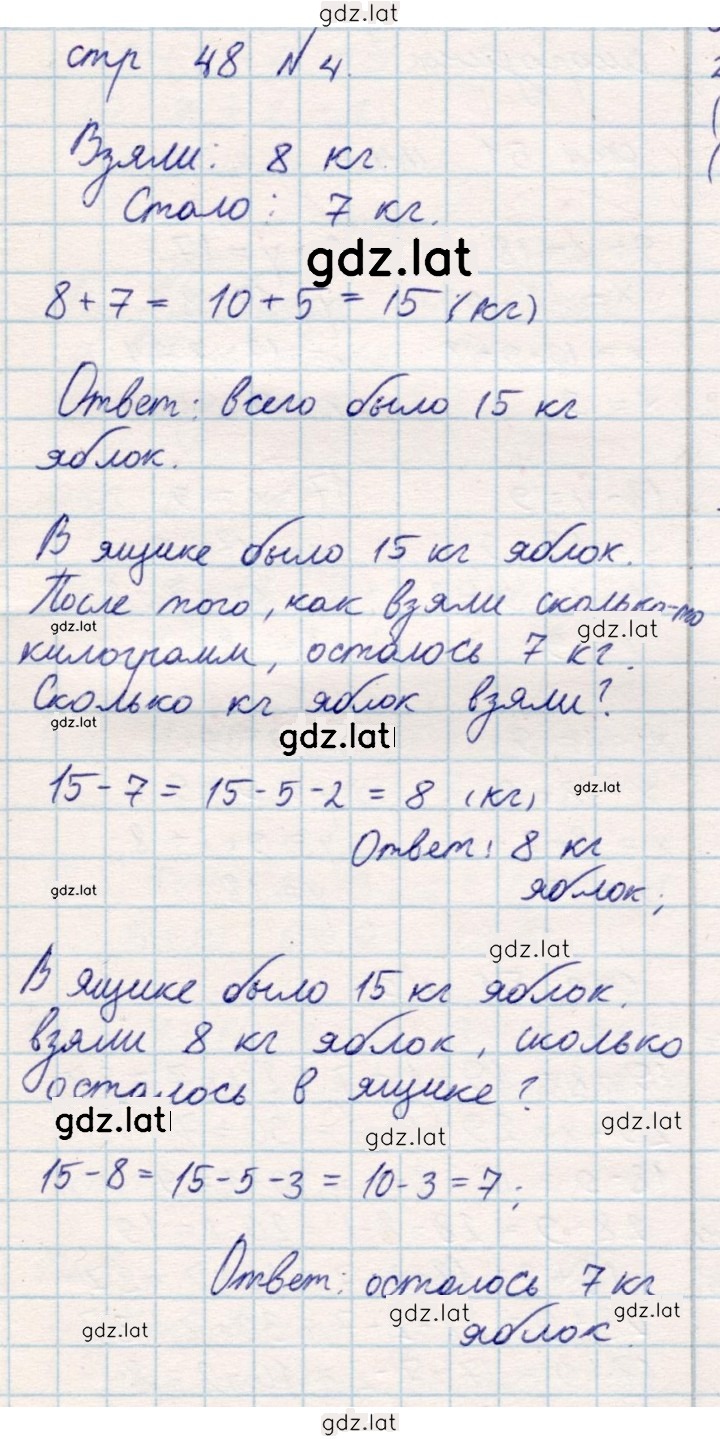 gdz.lat
стр 48 № 4.
Взяли: 8 кг.
Стало: 7 кг.
gdz.lat
8 + 7 = 10 + 5 = 15 (кг)
Ответ: всего было 15 кг
яблок.
В ящике было 15 кг яблок.
После того, как взяли сколько-то
gdz.lat
gdz.lat
килограмм, осталось 7 кг.
Сколько кг яблок взяли?
gdz.lat
gdz.lat
15 - 7 = 15 - 5 - 2 = 8 (кг)
gdz.lat
Ответ: 8 кг
gdz.lat
яблок;
gdz.lat
В ящике было 15 кг яблок.
взяли 8 кг яблок, сколько
осталось в ящике?
gdz.lat
gdz.lat
gdz.lat
15 - 8 = 15 - 5 - 3 = 10 - 3 = 7;
Ответ: осталось 7 кг
gdz.lat
gdz.lat
gdz.lat
яблок.
gdz.lat